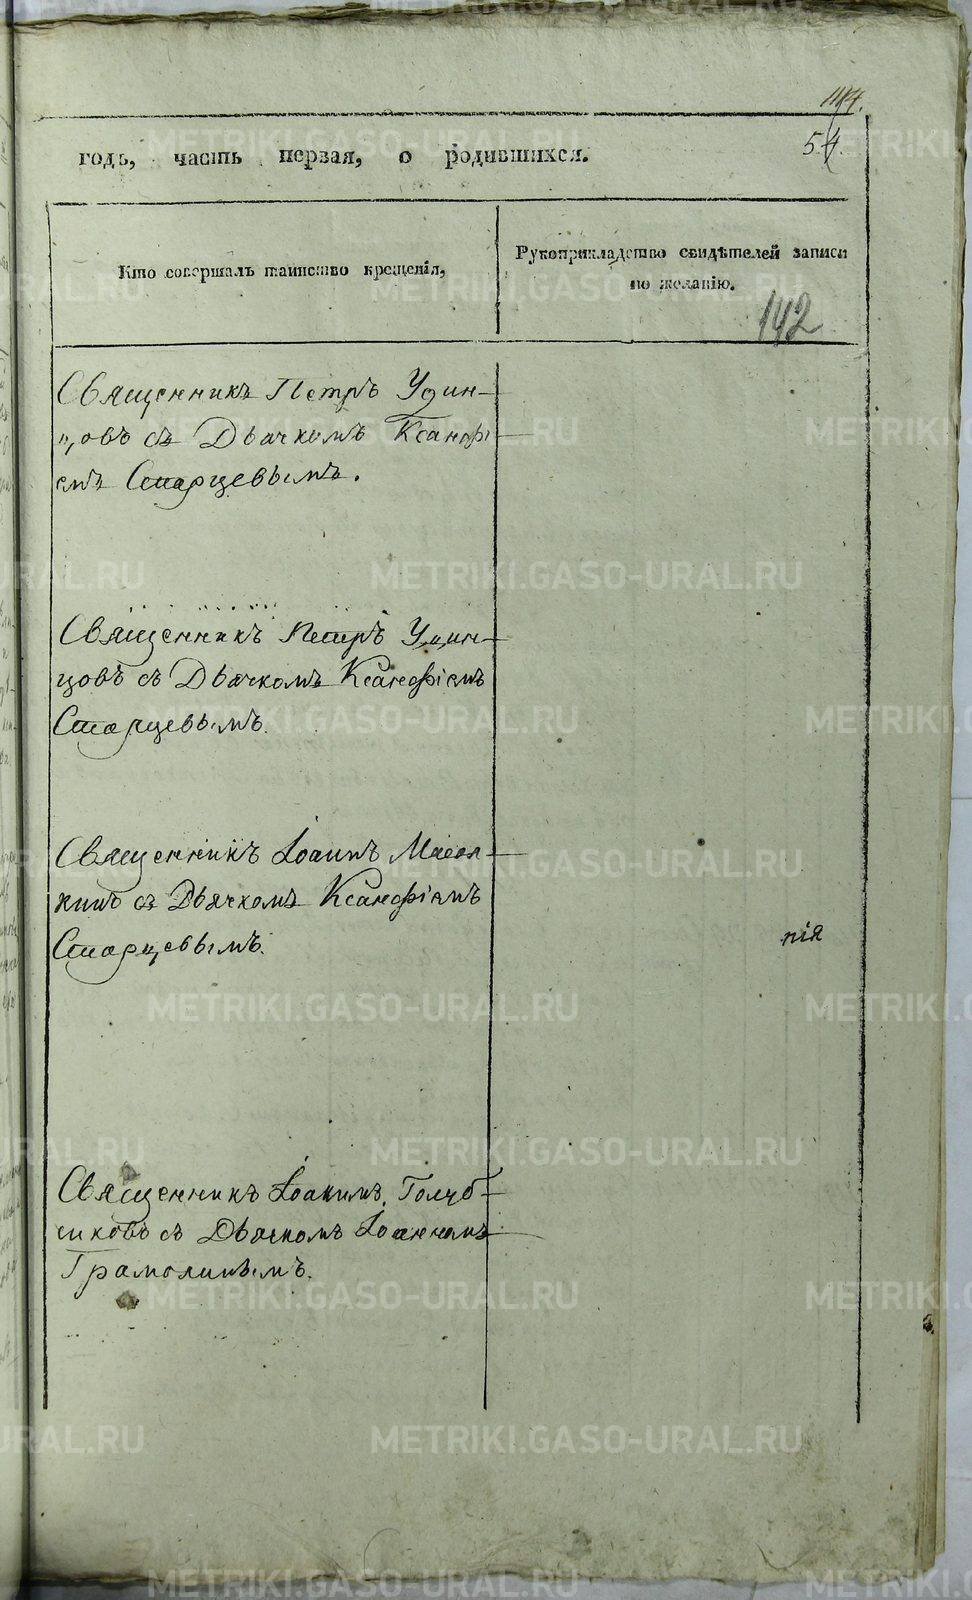 114.
54.
годъ, часть первая, о родившихся.
Кто совершалъ таинство крещенія,
Рукоприкладство свидѣтелей записи
по желанію.
142
Священникъ Петръ Удин-
цовъ съ Дьячкомъ Ксанфі-
емъ Старцевымъ.
Священникъ Петръ Удин-
цовъ съ Дьячкомъ Ксанфіемъ
Старцевымъ.
Священникъ Іоаннъ
съ Дьячкомъ Ксанфіемъ
Старцевымъ.
нія
Священникъ Іоакимъ Голуб-
чиковъ съ Дьячкомъ Іоанномъ
Грамолинымъ.
METRIKI.GASO-URAL.RU